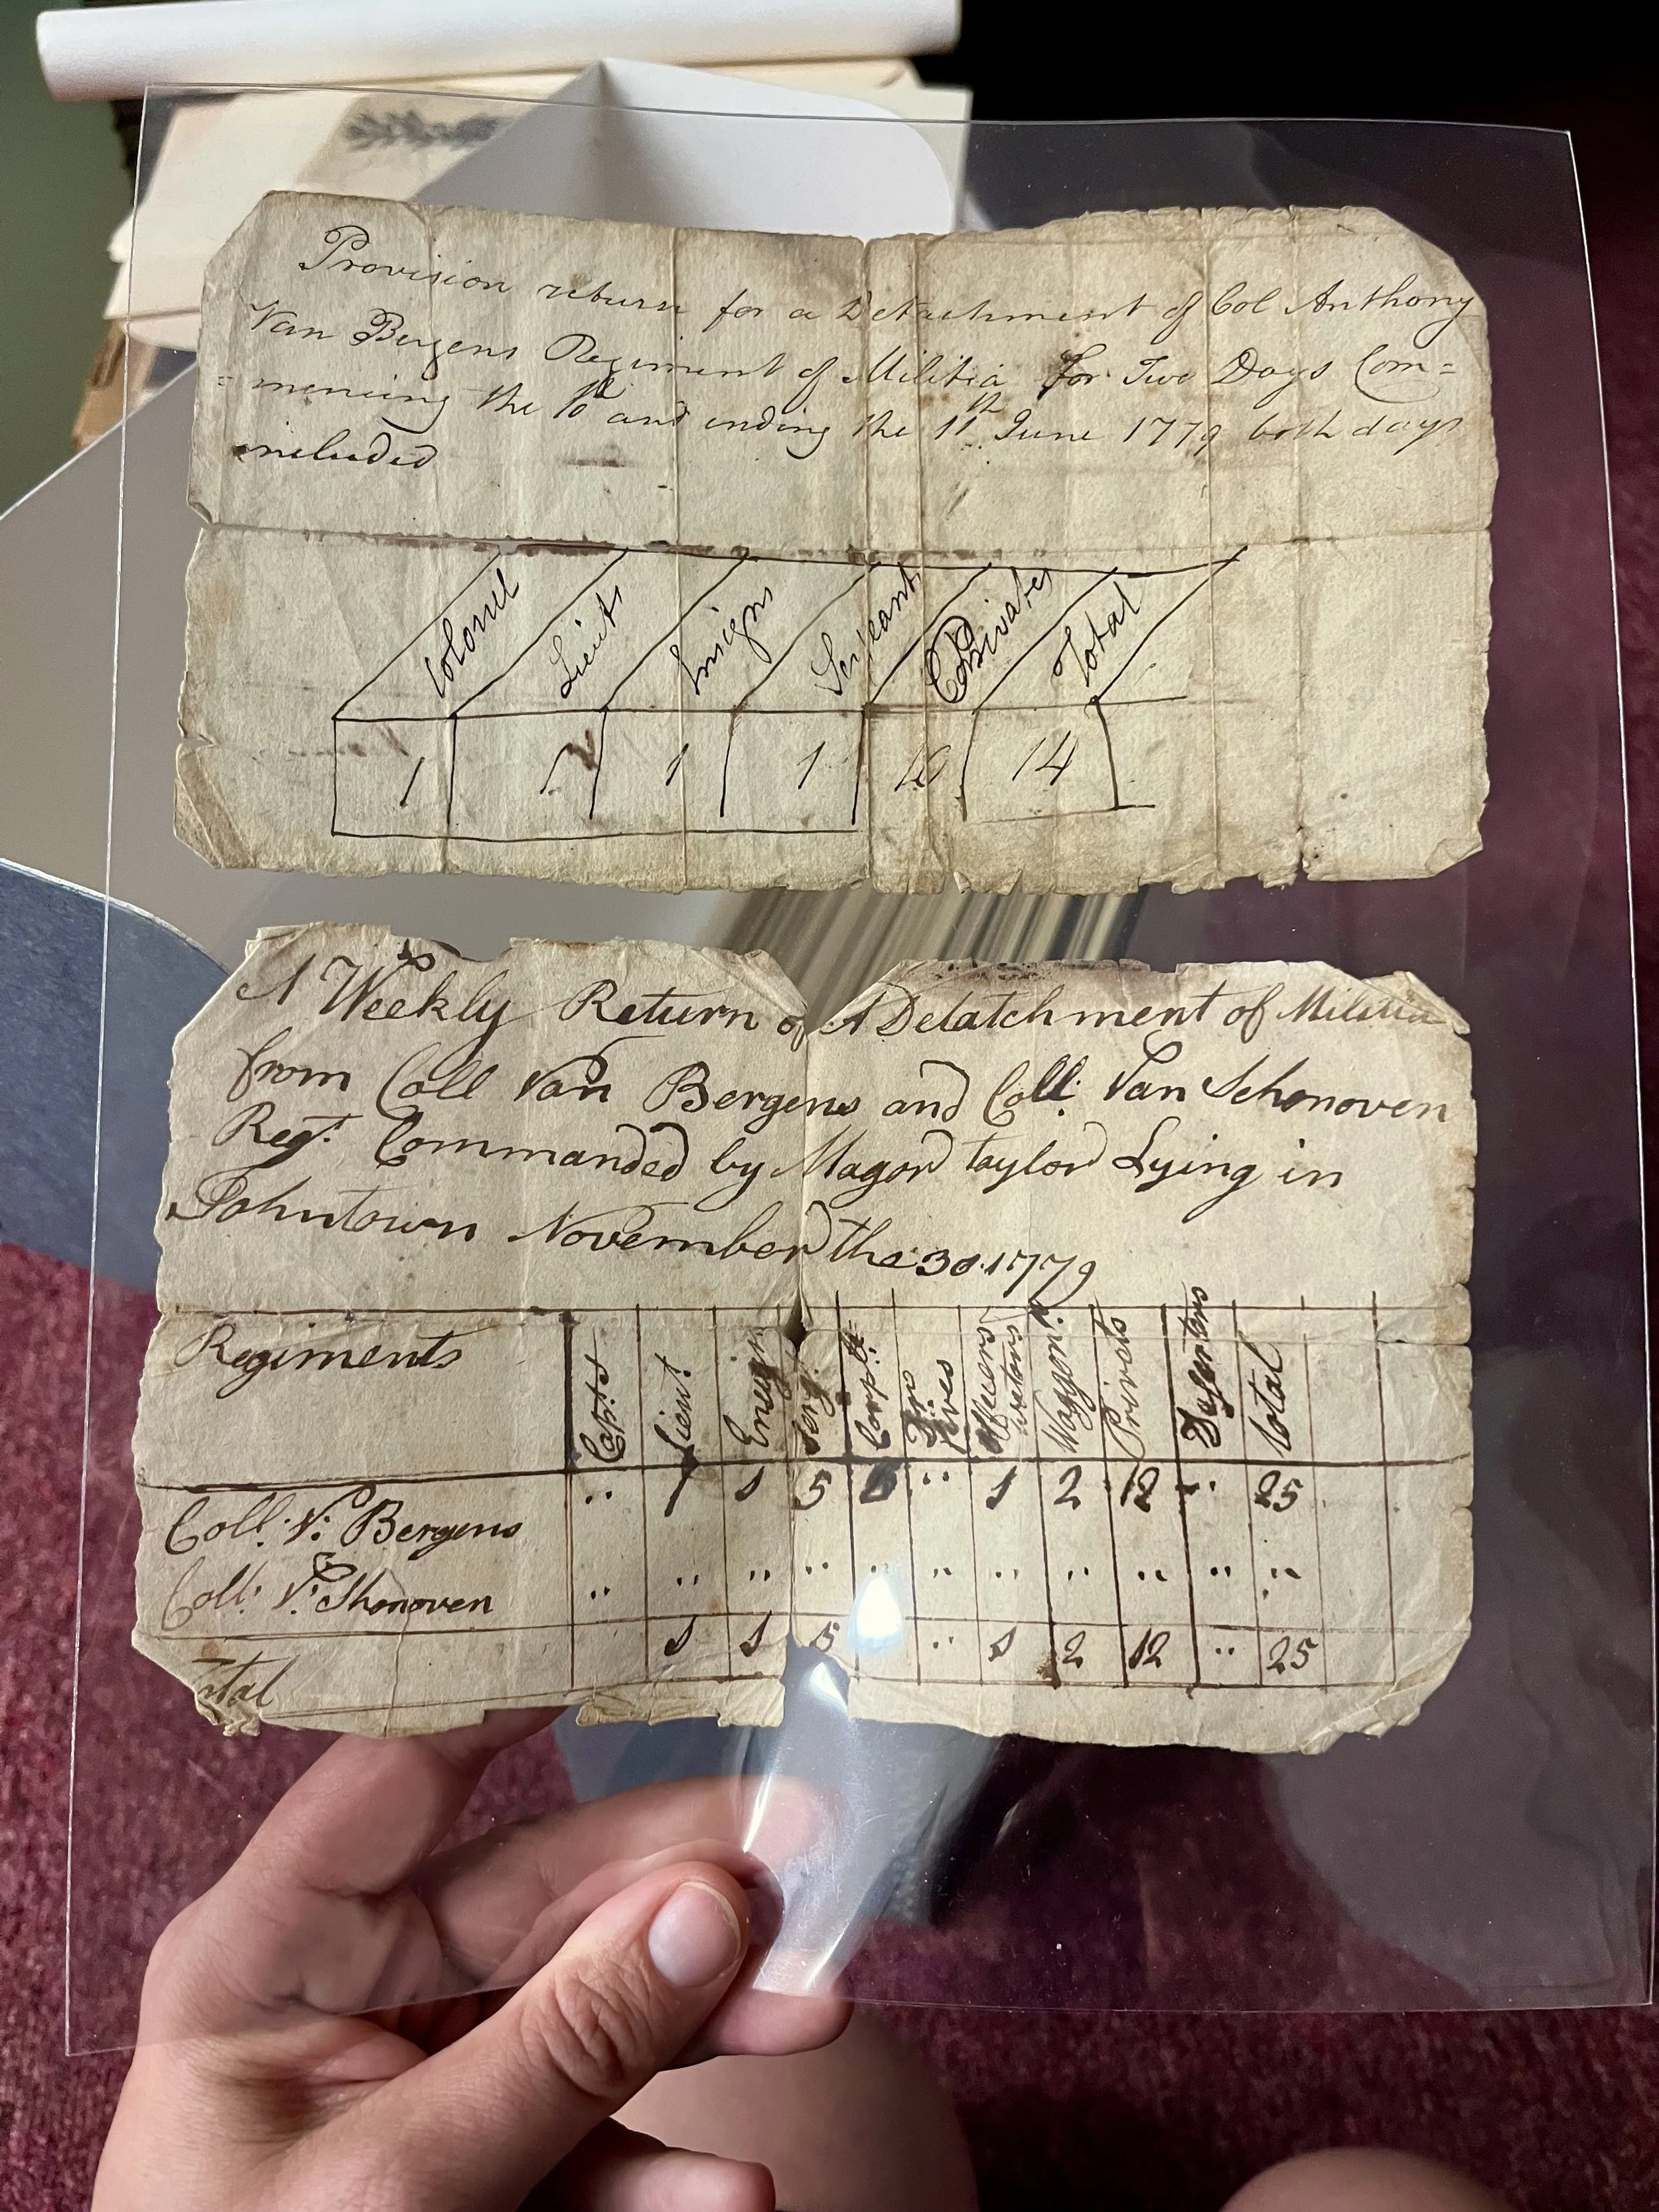 Provision return for a Detachment of Col Anthony
Van Bergens Regiment of Militia for Two Days Com=
=mencing the 10th and ending the 11th June 1779 both days
included
Colonel Lieuts Insigns Serjeants Privates Total
1 1 1 10 14
A Weekly Return of A Detatchment of Militia
from Coll Van Bergens and Coll: Van Schonoven
Regt. Commanded by Magor taylor Lying in
Johntown November the 30 1779
Regiments Capts Lieut. Ensign Serjt. Corpll. Officers Waggonr. Privets Deserters total
Coll: V: Bergens " 1 1 5 " 1 2 12 " 25
Coll: V: Shonoven " " " " " " " " " " "
total 1 1 5 " 1 2 12 " 25